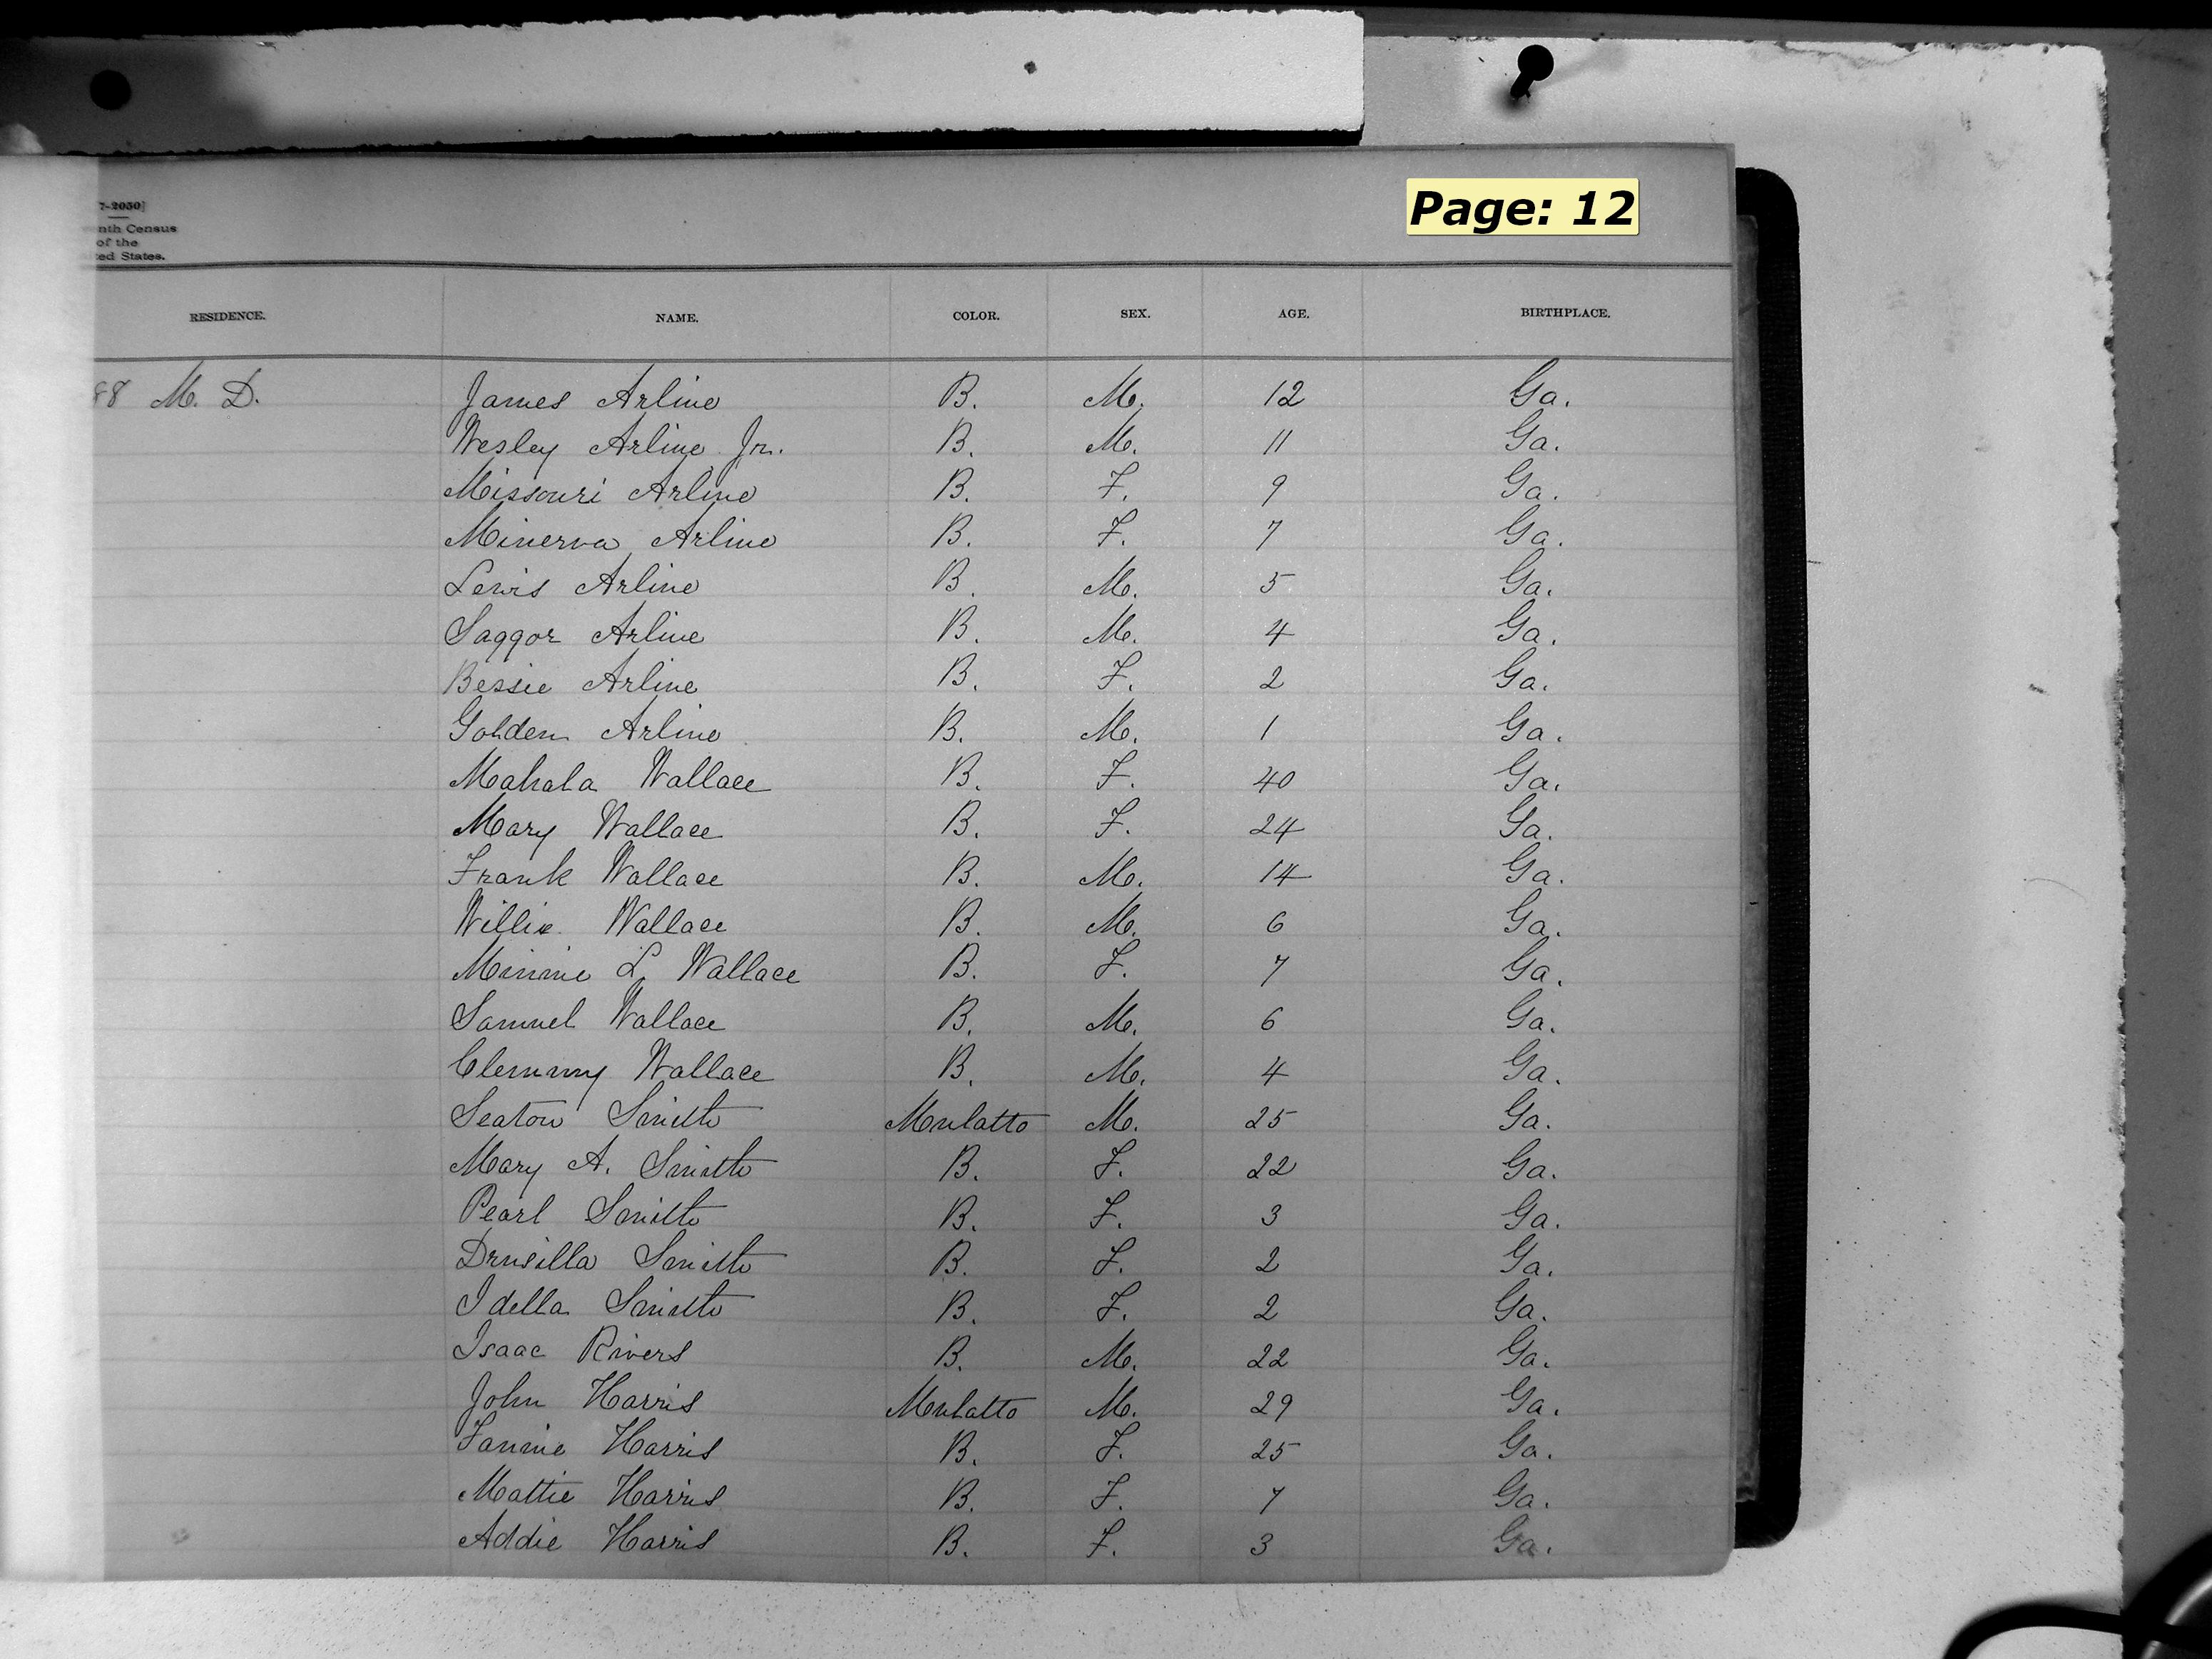 Page: 12
7-2050]
nth Census
of the
ted States.
RESIDENCE. NAME. COLOR. SEX. AGE. BIRTHPLACE.
88 M. D. James Arline B. M. 12 Ga.
Wesley Arline Jr. B. M. 11 Ga.
Missouri Arline B. F. 9 Ga.
Minerva Arline B. F. 7 Ga.
Lewis Arline B. M. 5 Ga.
Saggor Arline B. M. 4 Ga.
Bessie Arline B. F. 2 Ga.
Golden Arline B. M. 1 Ga.
Mahala Wallace B. F. 40 Ga.
Mary Wallace B. F. 24 Ga.
Frank Wallace B. M. 14 Ga.
Willie Wallace B. M. 6 Ga.
Minnie L. Wallace B. F. 7 Ga.
Samuel Wallace B. M. 6 Ga.
Clemmy Wallace B. M. 4 Ga.
Seaton Smith Mulatto M. 25 Ga.
Mary A. Smith B. F. 22 Ga.
Pearl Smith B. F. 3 Ga.
Drusilla Smith B. F. 2 Ga.
Idella Smith B. F. 2 Ga.
Isaac Rivers B. M. 22 Ga.
John Harris Mulatto M. 29 Ga.
Fannie Harris B. F. 25 Ga.
Mattie Harris B. F. 7 Ga.
Addie Harris B. F. 3 Ga.